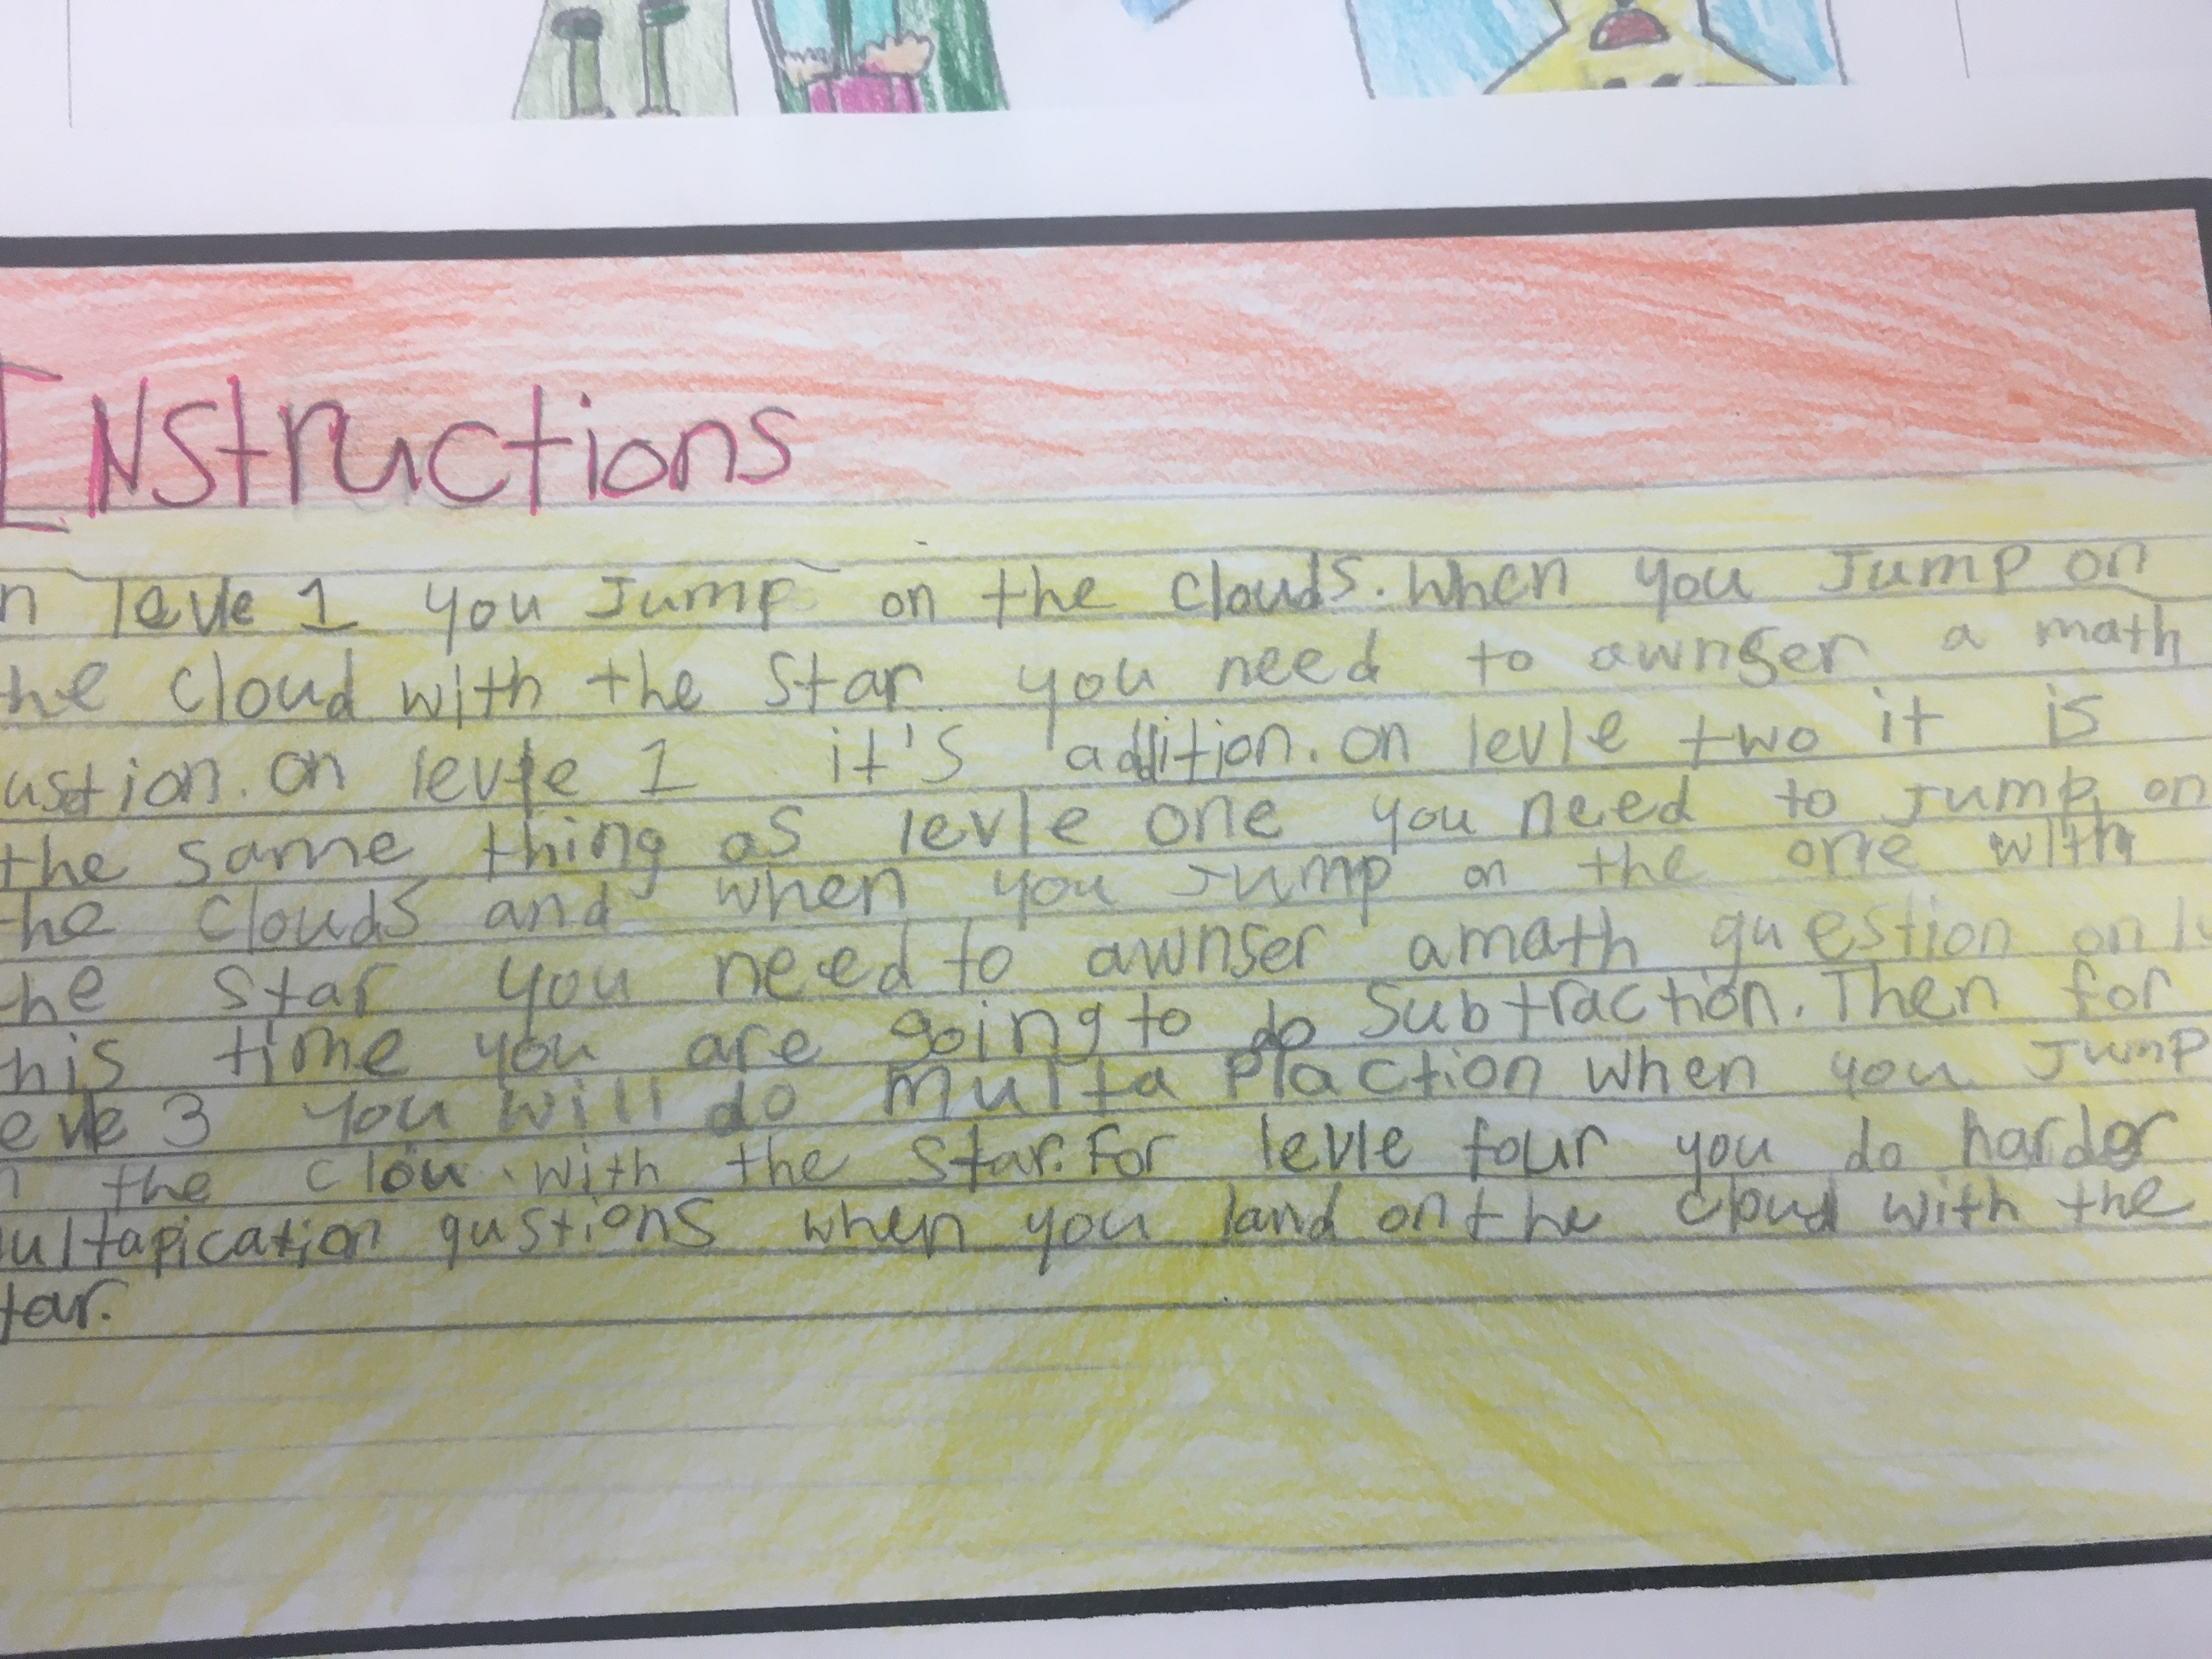 Instructions
n levle 1 you Jump on the clouds. When you Jump on
he cloud with the star you need to awnser a math
ustion. on levle 1 it's addition. on levle two it is
the same thing as levle one you need to Jump on
he clouds and when you Jump on the one with
he star you need to awnser amath question only
his time you are going to do Subtraction. Then for
evle 3 you will do multa plaction when you Jump
n the clou with the star. For levle four you do harder
ultapication qustions when you land on the cloud with the
tar.